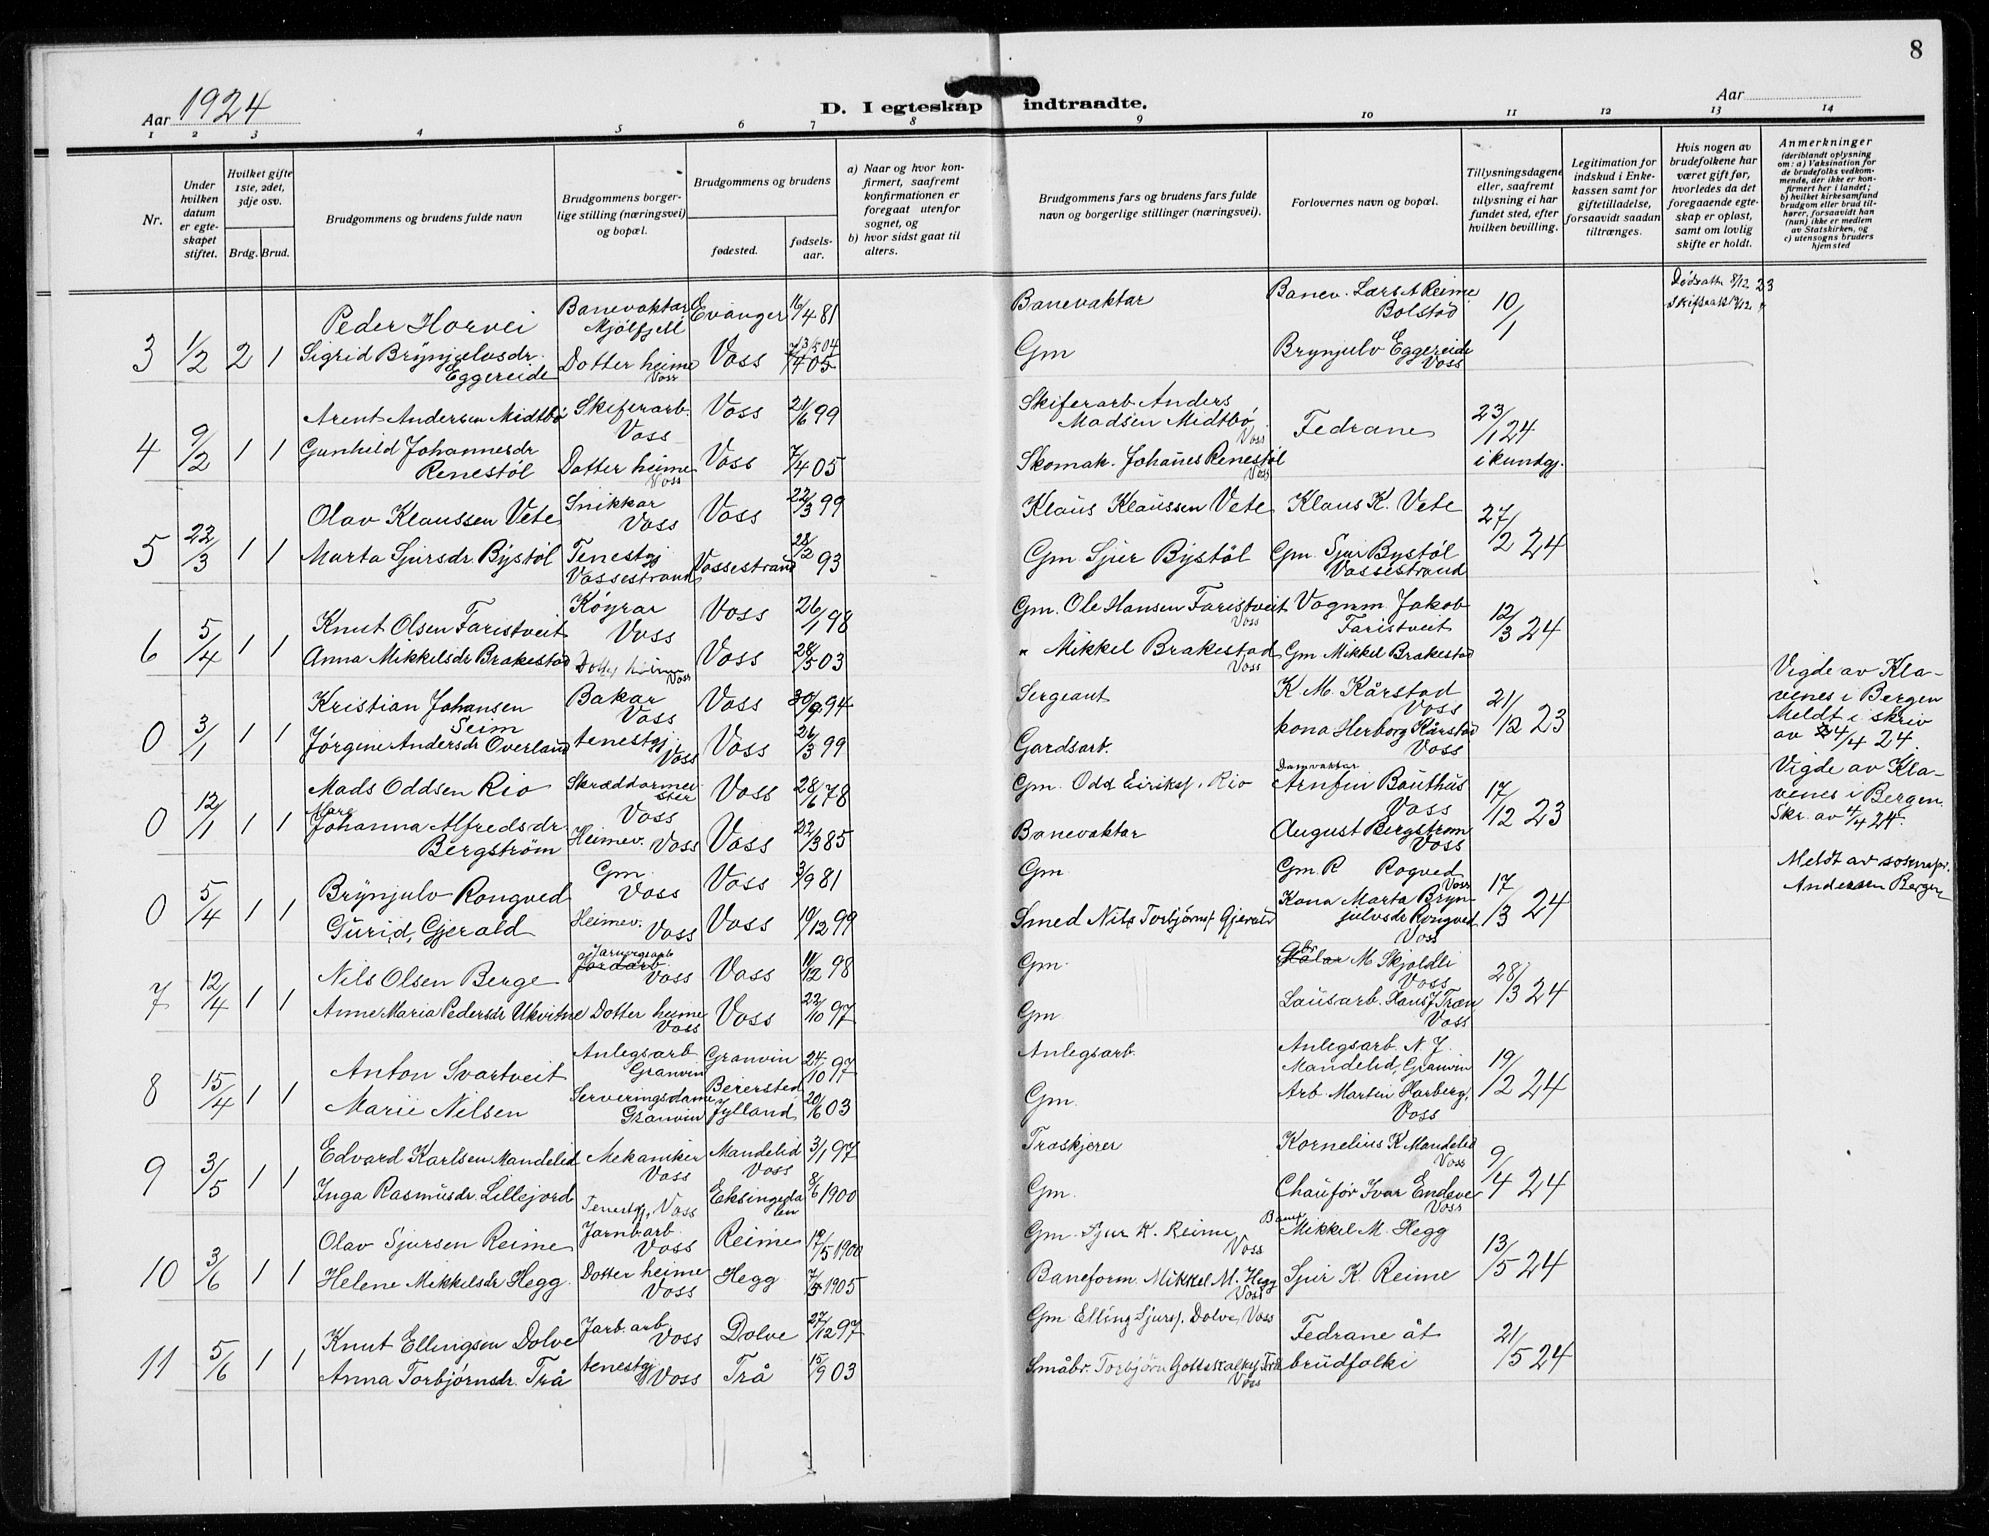 8
Aar 1924
D. I egteskap indtraadte.
Aar
1 2 3 4 5 6 7 8 9 10 11 12 13 14
Nr.
Under hvilken datum er egteskapet stiftet.
Hvilket gifte 1ste, 2det, 3dje osv.
Brdg. Brud.
Brudgommens og brudens fulde navn
Brudgommens borgerlige stilling (næringsvei) og bopæl.
Brudgommens og brudens
fødested.
fødselsaar.
a) Naar og hvor konfirmert, saafremt konfirmationen er foregaat utenfor sognet, og
b) hvor sidst gaat til alters.
Brudgommens fars og brudens fars fulde navn og borgerlige stillinger (næringsvei).
Forlovernes navn og bopæl.
Tillysningsdagene eller, saafremt tillysning ei har fundet sted, efter hvilken bevilling.
Legitimation for indskud i Enkekassen samt for giftetilladelse, forsaavidt saadan tiltrænges.
Hvis nogen av brudefolkene har været gift før, hvorledes da det foregaaende egteskap er opløst, samt om lovlig skifte er holdt.
Anmerkninger
(deriblandt oplysning om: a) Vaksination for de brudefolks vedkommende, der ikke er konfirmert her i landet; b) hvilket kirkesamfund brudgom eller brud tilhører, forsaavidt han (hun) ikke er medlem av Statskirken, og c) utensogns bruders hjemsted
3 1/2 2 1
Peder Horvei Banevaktar Mjölfjell Evanger 16/4 81 Banevaktar Banev. Lars A Reime Bolstad 10/1 Dödsatt. 8/12 23
Sigrid Brynjulvsdr. Eggereide Dotter heime Voss Voss 13/5 04 7/4 05 Gm Brynjulv Eggereide Voss
4 9/2 1 1
Arent Andersen Midtbö Skiferarb. Voss Voss 21/6 99 Skiferarb Anders Madsen Midtbö Voss Fedrane 23/1 24
Gunhild Johannesdr Renestöl Dotter heime Voss Voss 7/4 05 Skomak. Johanes Renestöl Voss i kundgj.
5 22/3 1 1
Olav Klaussen Vete Snikkar Voss Voss 22/3 99 Klaus Klaussen Vete Klaus K. Vete 27/2 24
Marta Sjursdr. Bystöl Tenestgj Vossestrand Vossestrand 28/2 93 Gm Sjur Bystöl Gm. Sjur Bystöl Vossestrand
6 5/4 1 1
Knut Olsen Faristveit Köyrar Voss Voss 26/1 98 Gm. Ole Hansen Faristveit Voss Vognm. Jakob Faristveit 12/3 24
Anna Mikkelsdr Brakestad Dotter heime Voss Voss 28/5 03 " Mikkel Brakestad Voss Gm Mikkel Brakestad
0 3/1 1 1
Kristian Johansen Seim Bakar Voss Voss 30/9 94 Sergeant K. M. Kårstad Voss 21/12 23
Jörgine Andersdr Överland tenestgj. Voss Voss 26/3 99 Gardsarb. kona Herborg Kårstad Voss
Vigde av Klavenes i Bergen Meldt i skriv av 4/4 24.
0 12/1 1 1
Mads Oddsen Rio Skræddarmeister Voss Voss 28/6 78 Gm. Odd Eiriks. Rio Arnfin Bauthus Voss 17/12 23
Johanna Alfredsdr Bergström Heimev. Voss Voss 22/3 85 Banevaktar August Bergström Voss
Vigde av Klavenes i Bergen. Skr. av 4/4 24.
0 5/4 1 1
Brynjulv Rongved Gm. Voss Voss 3/9 81 Gm Gm. R Rogved Voss 17/3 24
Gurid, Gjerald Heimev. Voss Voss 19/12 99 Smed Nils Torbjörns. Gjerald Kona Marta Brynjulvsdr Rongved Voss
Meldt av soknepr. Andersen Bergen
7 12/4 1 1
Nils Olsen Berge Voss Voss 11/12 98 Gm. M Skjoldli Voss 28/3 24
Anne Maria Pedersdr Ukvitne Dotter heime Voss Voss 22/10 97 Gm Lausarb. Hans J Træn Voss
8 15/4 1 1
Anton Svartveit Anlegsarb Granvin Granvin 24/10 97 Anlegsarb. Anlegsarb. N. J. Mandelid, Granvin 19/2 24
Marie Nelsen Serveringsdame Granvin Beiersted Jylland 20/6 03 Gm. Arb Martin Harberg, Voss
9 3/5 1 1
Edvard Karlsen Mandelid Mekaniker Voss Mandelid Voss 3/1 97 Træskjerer Kornelius K Mandelid Voss 9/4 24
Inga Rasmusdr. Lillejord Tenestgj, Voss Eksingedalen 8/6 1900 Gm. Chauför Ivar Endeve Voss
10 3/6 1 1
Olav Sjursen Reime Jarnbarb. Voss Reime 19/5 1900 Gm. Sjur K. Reime Voss Mikkel M. Hegg 13/5 24
Helene Mikkelsdr Hegg Dotter heime Voss Hegg 7/5 1905 Baneform. Mikkel M. Hegg Voss Sjur K. Reime
11 5/6 1 1
Knut Ellingsen Dolve Jarb. arb Voss Dolve 27/12 97 Gm Elling Sjurs. Dolve, Voss Fedrane åt 21/5 24
Anna Torbjörnsdr. Trå tenestgj Voss Trå 15/9 03 Småbr. Torbjörn Gottskalks. Trå Voss brudfolki